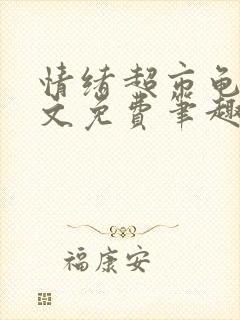 情绪超市龟
文免费笔趣
福康安